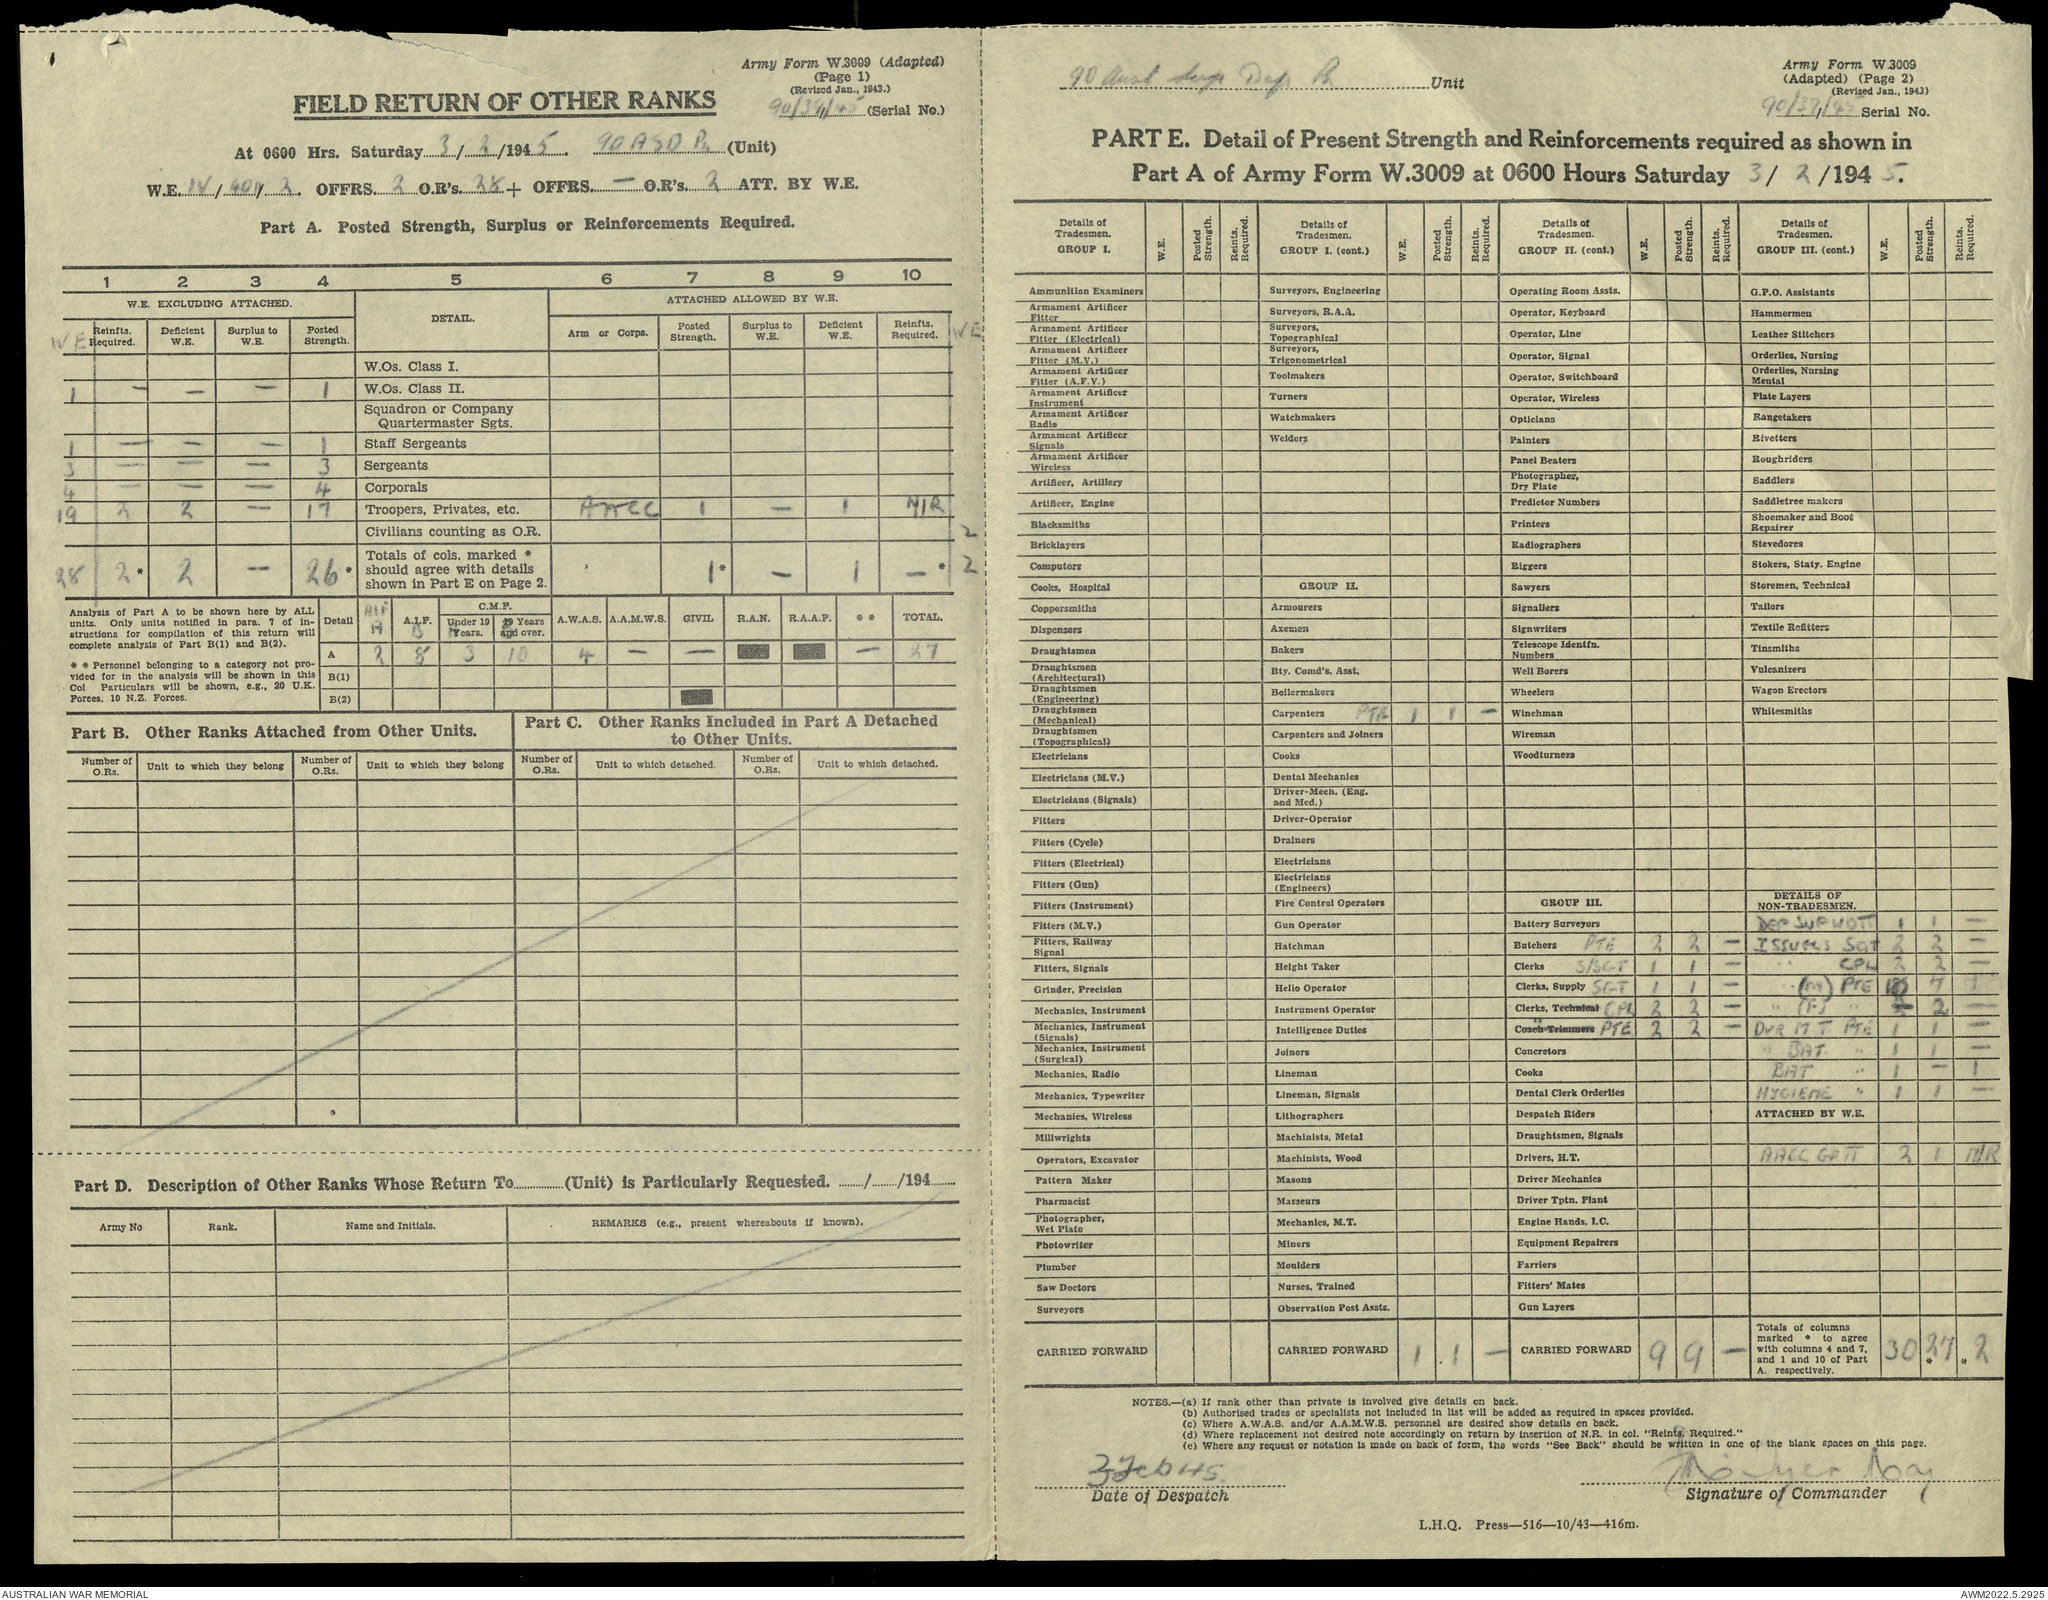 Army Form W.3009 (Adapted)
(Page 1)
(Revised Jan., 1943.)
90/39/45 (Serial No.)
FIELD RETURN OF OTHER RANKS
At 0600 Hrs. Saturday 3/2/1945. 90 ASD Pl (Unit)
W.E. IV/401/2. OFFRS. 2 O.R's. 28 + OFFRS. — O.R's. 2 ATT. BY W.E.
Part A. Posted Strength, Surplus or Reinforcements Required.
1 2 3 4 5 6 7 8 9 10
W.E. EXCLUDING ATTACHED. DETAIL. ATTACHED ALLOWED BY W.E.
WE Reinfts. Required. Deficient W.E. Surplus to W.E. Posted Strength. Arm or Corps. Posted Strength. Surplus to W.E. Deficient W.E. Reinfts. Required. WE
W.Os. Class I.
1 — — — 1 W.Os. Class II.
Squadron or Company Quartermaster Sgts.
1 — — — 1 Staff Sergeants
3 — — — 3 Sergeants
4 — — — 4 Corporals
19 2 2 — 17 Troopers, Privates, etc. AACC 1 — 1 N/R
Civilians counting as O.R. 2
28 2* 2 — 26* Totals of cols. marked * should agree with details shown in Part E on Page 2. 1* — 1 —* 2
Analysis of Part A to be shown here by ALL units. Only units notified in para. 7 of instructions for compilation of this return will complete analysis of Part B(1) and B(2).
* * Personnel belonging to a category not provided for in the analysis will be shown in this Col Particulars will be shown, e.g., 20 U.K. Forces. 10 N.Z. Forces.
Detail AIF A A.I.F. B C.M.F. Under 19 Years. A 19 Years and over. B A.W.A.S. A.A.M.W.S. CIVIL R.A.N. R.A.A.F. * * TOTAL.
A 2 8 3 10 4 — — — 27
B(1)
B(2)
Part B. Other Ranks Attached from Other Units.
Part C. Other Ranks Included in Part A Detached to Other Units.
Number of O.Rs. Unit to which they belong Number of O.Rs. Unit to which they belong Number of O.Rs. Unit to which detached. Number of O.Rs. Unit to which detached.
Part D. Description of Other Ranks Whose Return To (Unit) is Particularly Requested. / /194
Army No Rank. Name and Initials. REMARKS (e.g., present whereabouts if known).
90 Aust Sup Dep Pl Unit
Army Form W.3009
(Adapted) (Page 2)
(Revised Jan., 1943)
90/39/45 Serial No.
PART E. Detail of Present Strength and Reinforcements required as shown in
Part A of Army Form W.3009 at 0600 Hours Saturday 3/2/1945.
Details of Tradesmen. GROUP I. W.E. Posted Strength. Reints. Required.
Ammunition Examiners
Armament Artificer Fitter
Armament Artificer Fitter (Electrical)
Armament Artificer Fitter (M.V.)
Armament Artificer Fitter (A.F.V.)
Armament Artificer Instrument
Armament Artificer Radio
Armament Artificer Signals
Armament Artificer Wireless
Artificer, Artillery
Artificer, Engine
Blacksmiths
Bricklayers
Computors
Cooks, Hospital
Coppersmiths
Dispensers
Draughtsmen
Draughtsmen (Architectural)
Draughtsmen (Engineering)
Draughtsmen (Mechanical)
Draughtsmen (Topographical)
Electricians
Electricians (M.V.)
Electricians (Signals)
Fitters
Fitters (Cycle)
Fitters (Electrical)
Fitters (Gun)
Fitters (Instrument)
Fitters (M.V.)
Fitters, Railway Signal
Fitters, Signals
Grinder, Precision
Mechanics, Instrument
Mechanics, Instrument (Signals)
Mechanics, Instrument (Surgical)
Mechanics, Radio
Mechanics, Typewriter
Mechanics, Wireless
Millwrights
Operators, Excavator
Pattern Maker
Pharmacist
Photographer, Wet Plate
Photowriter
Plumber
Saw Doctors
Surveyors
CARRIED FORWARD
Details of Tradesmen. GROUP I. (cont.) W.E. Posted Strength. Reints. Required.
Surveyors, Engineering
Surveyors, R.A.A.
Surveyors, Topographical
Surveyors, Trigonometrical
Toolmakers
Turners
Watchmakers
Welders
GROUP II.
Armourers
Axemen
Bakers
Bty. Comd's. Asst.
Boilermakers
Carpenters PTE 1 1 —
Carpenters and Joiners
Cooks
Dental Mechanics
Driver-Mech. (Eng. and Med.)
Driver-Operator
Drainers
Electricians
Electricians (Engineers)
Fire Control Operators
Gun Operator
Hatchman
Height Taker
Helio Operator
Instrument Operator
Intelligence Duties
Joiners
Lineman
Lineman, Signals
Lithographers
Machinists, Metal
Machinists, Wood
Masons
Masseurs
Mechanics, M.T.
Miners
Moulders
Nurses, Trained
Observation Post Assts.
CARRIED FORWARD 1 1 —
Details of Tradesmen. GROUP II. (cont.) W.E. Posted Strength. Reints. Required.
Operating Room Assts.
Operator, Keyboard
Operator, Line
Operator, Signal
Operator, Switchboard
Operator, Wireless
Opticians
Painters
Panel Beaters
Photographer, Dry Plate
Predictor Numbers
Printers
Radiographers
Riggers
Sawyers
Signallers
Signwriters
Telescope Identfn. Numbers
Well Borers
Wheelers
Winchman
Wireman
Woodturners
GROUP III.
Battery Surveyors
Butchers PTE 2 2 —
Clerks S/SGT 1 1 —
Clerks, Supply SGT 1 1 —
Clerks, Technical CPL 2 2 —
Coach Trimmers PTE 2 2 —
Concretors
Cooks
Dental Clerk Orderlies
Despatch Riders
Draughtsmen, Signals
Drivers, H.T.
Driver Mechanics
Driver Tptn. Plant
Engine Hands, I.C.
Equipment Repairers
Farriers
Fitters' Mates
Gun Layers
CARRIED FORWARD 9 9 —
Details of Tradesmen. GROUP III. (cont.) W.E. Posted Strength. Reints. Required.
G.P.O. Assistants
Hammermen
Leather Stitchers
Orderlies, Nursing
Orderlies, Nursing Mental
Plate Layers
Rangetakers
Rivetters
Roughriders
Saddlers
Saddletree makers
Shoemaker and Boot Repairer
Stevedores
Stokers, Staty. Engine
Storemen, Technical
Tailors
Textile Refitters
Tinsmiths
Vulcanizers
Wagon Erectors
Whitesmiths
DETAILS OF NON-TRADESMEN.
DEP SUP WOII 1 1 —
ISSUERS SGT 2 2 —
" CPL 2 2 —
" (M) PTE 7 1
" (F) " 2
DVR M T PTE 1 1 —
" BAT " 1 1 —
BAT " 1 — 1
HYGIENE " 1 1 —
ATTACHED BY W.E.
AACC GP II 2 1 N/R
Totals of columns marked * to agree with columns 4 and 7, and 1 and 10 of Part A. respectively. 30 27* 2*
NOTES.—(a) If rank other than private is involved give details on back.
(b) Authorised trades or specialists not included in list will be added as required in spaces provided.
(c) Where A.W.A.S. and/or A.A.M.W.S. personnel are desired show details on back.
(d) Where replacement not desired note accordingly on return by insertion of N.R. in col. "Reints. Required."
(e) Where any request or notation is made on back of form, the words "See Back" should be written in one of the blank spaces on this page.
3 Feb 45
Date of Despatch
Signature of Commander
L.H.Q. Press—516—10/43—416m.
AUSTRALIAN WAR MEMORIAL
AWM2022.5.2925